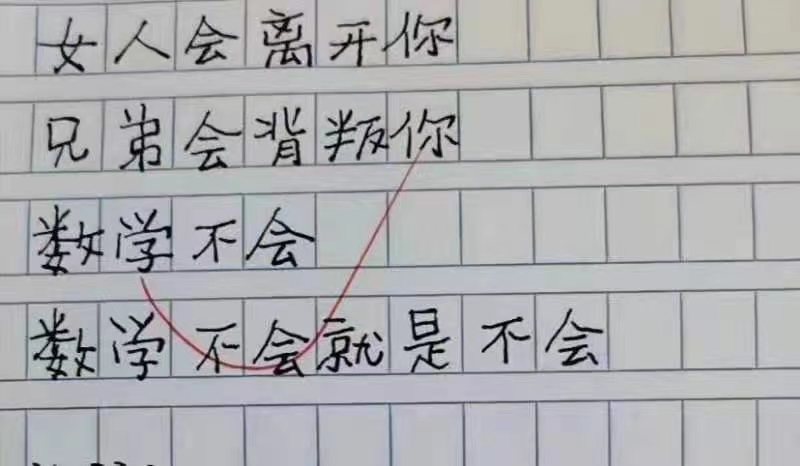 女人会离开你
兄弟会背叛你
数学不会
数学不会就是不会